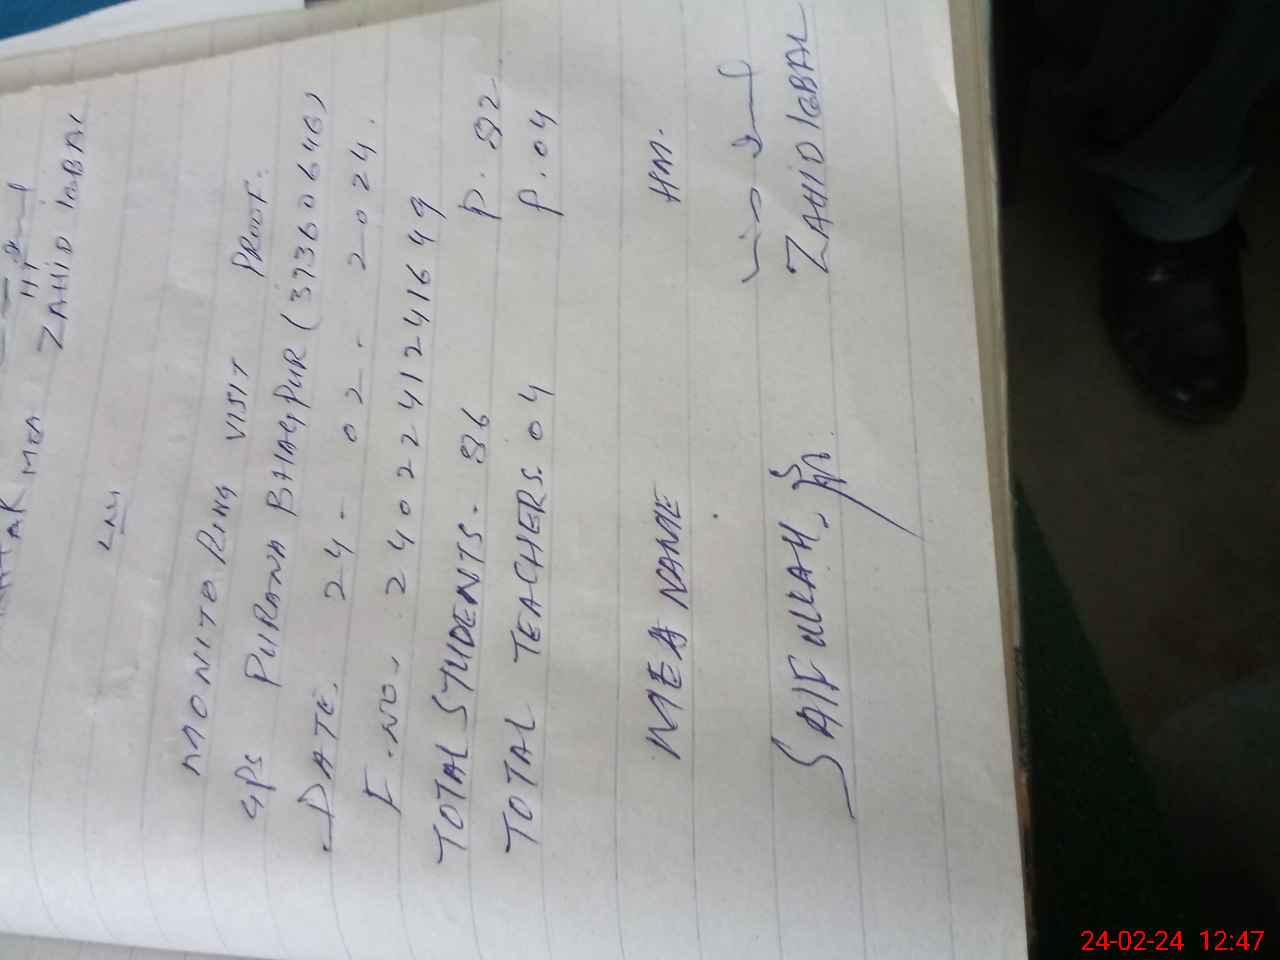 MEA ZAHID IQBAL
MONITORING VISIT PROOF.
GPS PURANA BHAGPUR (37360646)
DATE. 24-02-2024.
F.NO. 240224124 1649
TOTAL STUDENTS- 86 P. 82
TOTAL TEACHERS. 04 P. 04
MEA NAME HM.
SAIF ULLAH ZAHID IQBAL
24-02-24 12:47